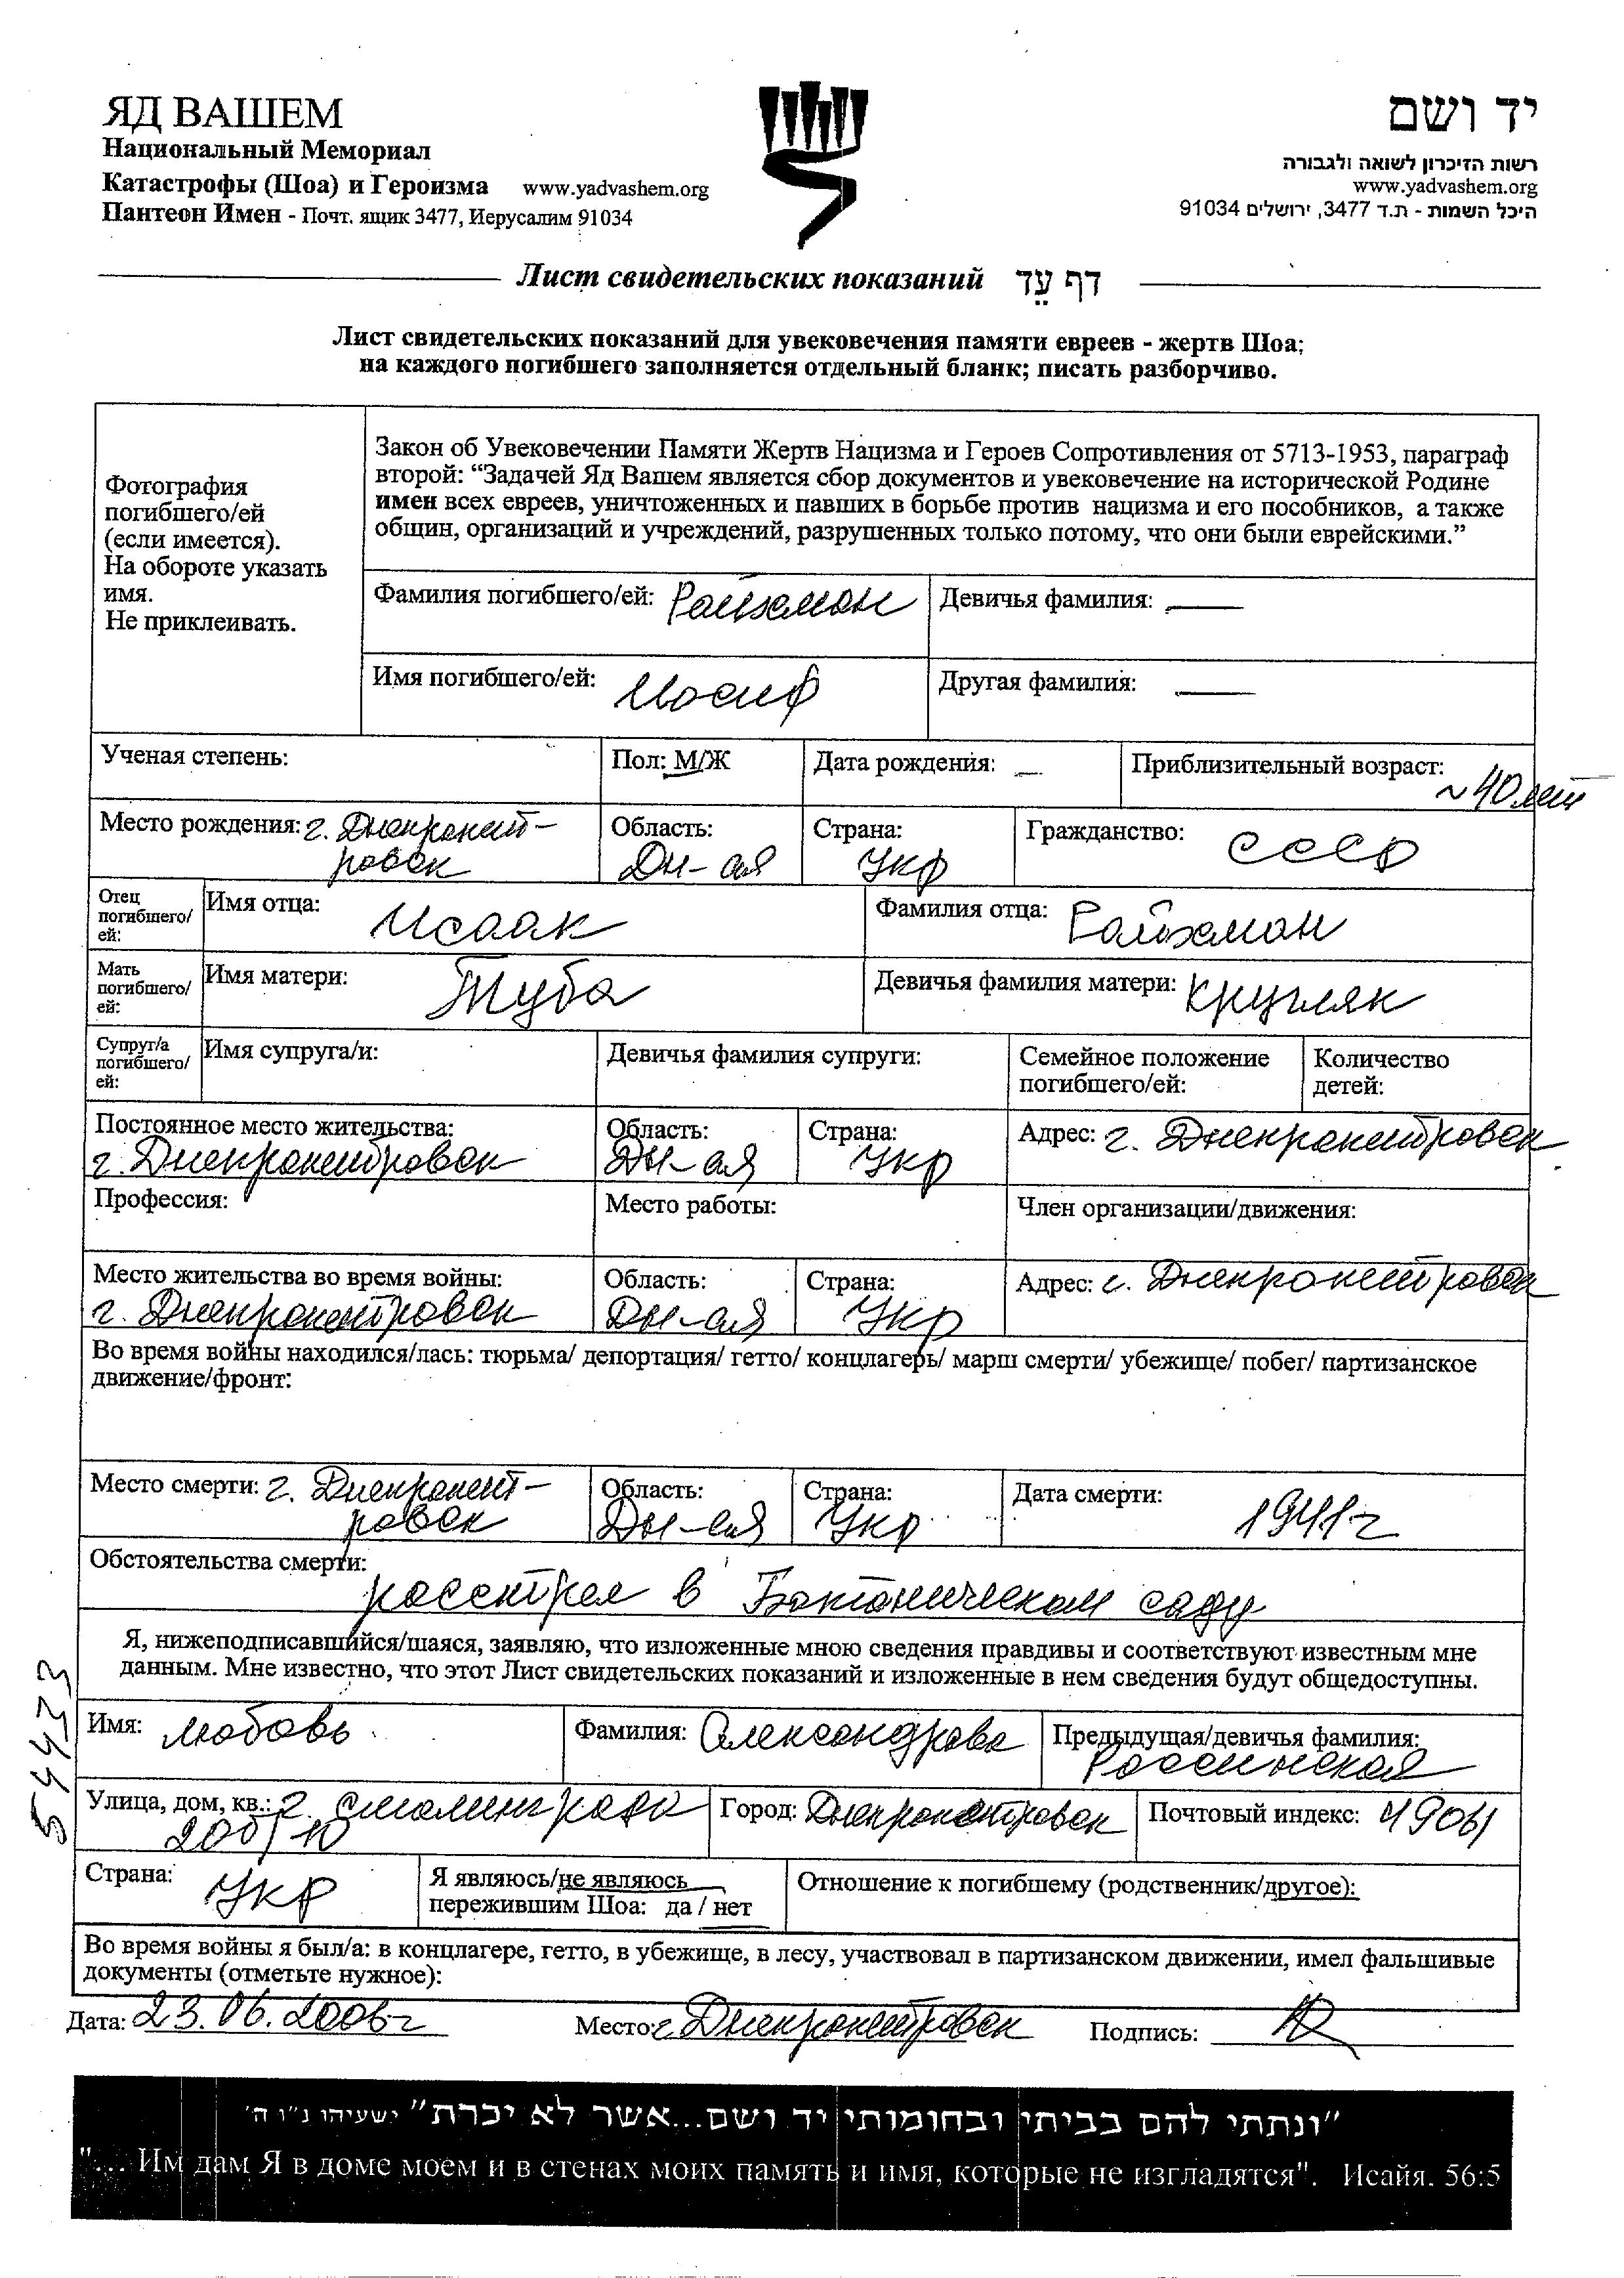 ЯД ВАШЕМ
Национальный Мемориал
Катастрофы (Шоа) и Героизма www.yadvashem.org
Пантеон Имен - Почт. ящик 3477, Иерусалим 91034
יד ושם
רשות הזיכרון לשואה ולגבורה
www.yadvashem.org
היכל השמות - ת.ד 3477, ירושלים 91034
Лист свидетельских показаний דף עֵד
Лист свидетельских показаний для увековечения памяти евреев - жертв Шоа;
на каждого погибшего заполняется отдельный бланк; писать разборчиво.
Фотография
погибшего/ей
(если имеется).
На обороте указать
имя.
Не приклеивать.
Закон об Увековечении Памяти Жертв Нацизма и Героев Сопротивления от 5713-1953, параграф
второй: “Задачей Яд Вашем является сбор документов и увековечение на исторической Родине
имен всех евреев, уничтоженных и павших в борьбе против нацизма и его пособников, а также
общин, организаций и учреждений, разрушенных только потому, что они были еврейскими.”
Фамилия погибшего/ей: Райхман Девичья фамилия: —
Имя погибшего/ей: Иосиф Другая фамилия: —
Ученая степень: Пол: М/Ж Дата рождения: — Приблизительный возраст: ~40 лет
Место рождения: г. Днепропет-
ровск Область: Дн-ая Страна: Укр Гражданство: СССР
Отец
погибшего/
ей: Имя отца: Исаак Фамилия отца: Райхман
Мать
погибшего/
ей: Имя матери: Туба Девичья фамилия матери: Кругляк
Супруг/а
погибшего/
ей: Имя супруга/и: Девичья фамилия супруги: Семейное положение
погибшего/ей: Количество
детей:
Постоянное место жительства:
г. Днепропетровск Область: Дн-ая Страна: Укр Адрес: г. Днепропетровск
Профессия: Место работы: Член организации/движения:
Место жительства во время войны:
г. Днепропетровск Область: Дн-ая Страна: Укр Адрес: г. Днепропетровск
Во время войны находился/лась: тюрьма/ депортация/ гетто/ концлагерь/ марш смерти/ убежище/ побег/ партизанское
движение/фронт:
Место смерти: г. Днепропет-
ровск Область: Дн-ая Страна: Укр Дата смерти: 1941г
Обстоятельства смерти:
расстрел в Ботаническом саду
Я, нижеподписавшийся/шаяся, заявляю, что изложенные мною сведения правдивы и соответствуют известным мне
данным. Мне известно, что этот Лист свидетельских показаний и изложенные в нем сведения будут общедоступны.
54423
Имя: Любовь Фамилия: Александрова Предыдущая/девичья фамилия:
Россинская
Улица, дом, кв.:
Город: Днепропетровск Почтовый индекс: 49061
Страна: Укр Я являюсь/не являюсь
пережившим Шоа: да / нет Отношение к погибшему (родственник/другое):
Во время войны я был/а: в концлагере, гетто, в убежище, в лесу, участвовал в партизанском движении, имел фальшивые
документы (отметьте нужное):
Дата: 23.06.2006г Место: г. Днепропетровск Подпись:
"ונתתי להם בביתי ובחומותי יד ושם...אשר לא יכרת" ישעיהו נ"ו ה'
"... Им дам Я в доме моем и в стенах моих память и имя, которые не изгладятся". Исайя. 56:5